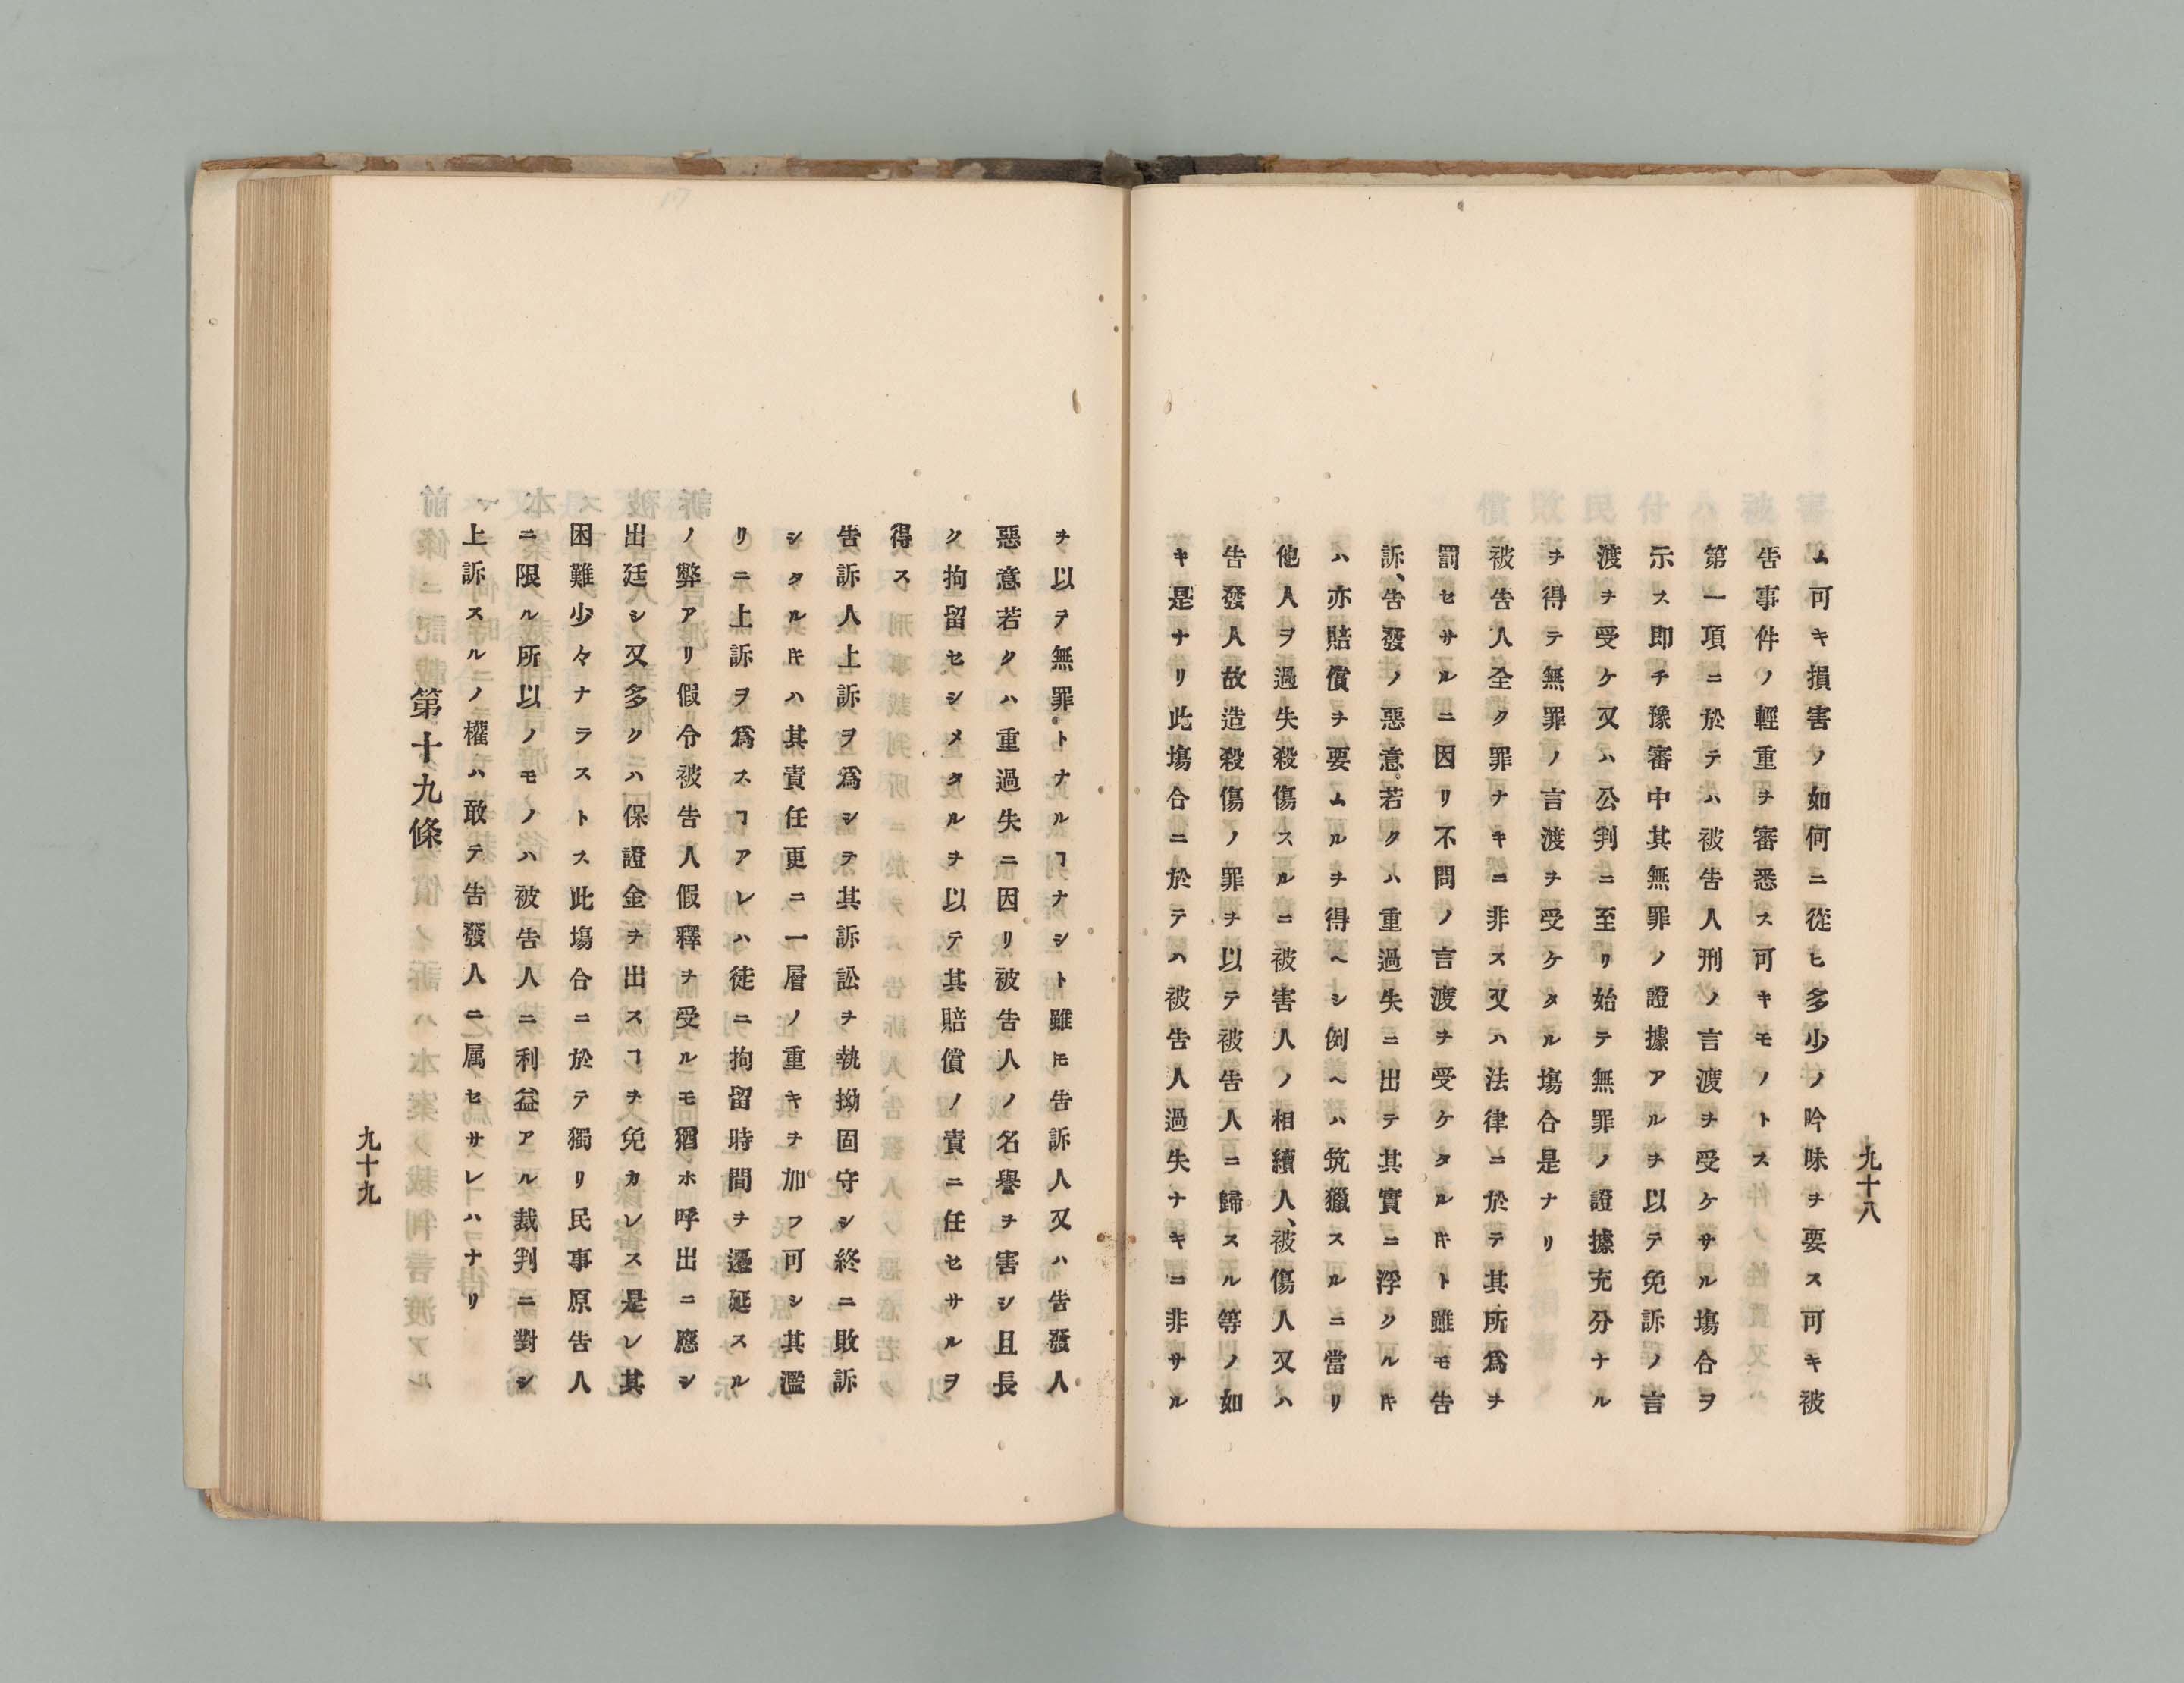 九十八
ム可キ損害ノ如何ニ從ヒ多少ノ吟味ヲ要ス可キ被
告事件ノ輕重ヲ審悉ス可キモノトス
第一項ニ於テハ被告人刑ノ言渡ヲ受ケサル塲合ヲ
示ス即チ豫審中其無罪ノ證據アルヲ以テ免訴ノ言
渡ヲ受ケ又ハ公判ニ至リ始テ無罪ノ證據充分ナル
ヲ得テ無罪ノ言渡ヲ受ケタル塲合是ナリ
被告人全ク罪ナキニ非ス又ハ法律ニ於テ其所爲ヲ
罰セサルニ因リ不問ノ言渡ヲ受ケタル𪜈ト雖モ告
訴、告發ノ惡意若クハ重過失ニ出テ其實ニ浮クル𪜈
ハ亦賠償ヲ要ムルヲ得ヘシ例ヘハ筑獵スルニ當リ
他人ヲ過失殺傷スルニ被害人ノ相續人、被傷人又ハ
告發人故造殺傷ノ罪ヲ以テ被告人ニ歸スル等ノ如
キ是ナリ此塲合ニ於テハ被告人過失ナキニ非サル
ヲ以テ無罪トナルヿナシト雖𪜈告訴人又ハ告發人
惡意若クハ重過失ニ因リ被告人ノ名譽ヲ害シ且長
ク拘留セシメタルヲ以テ其賠償ノ責ニ任セサルヲ
得ス
告訴人上訴ヲ爲シテ其訴訟ヲ執拗固守シ終ニ敗訴
シタル𪜈ハ其責任更ニ一層ノ重キヲ加フ可シ其濫
リニ上訴ヲ爲スヿアレハ徒ニ拘留時間ヲ遷延スル
ノ弊アリ假令被告人假釋ヲ受ルモ猶ホ呼出ニ應シ
出廷シ又多クハ保證金ヲ出スヿヲ免カレス是レ其
困難少々ナラストス此塲合ニ於テ獨リ民事原告人
ニ限ル所以ノモノハ被告人ニ利益アル裁判ニ對シ
上訴スルノ權ハ敢テ告發人ニ属セサレハナリ
第十九條
九十九